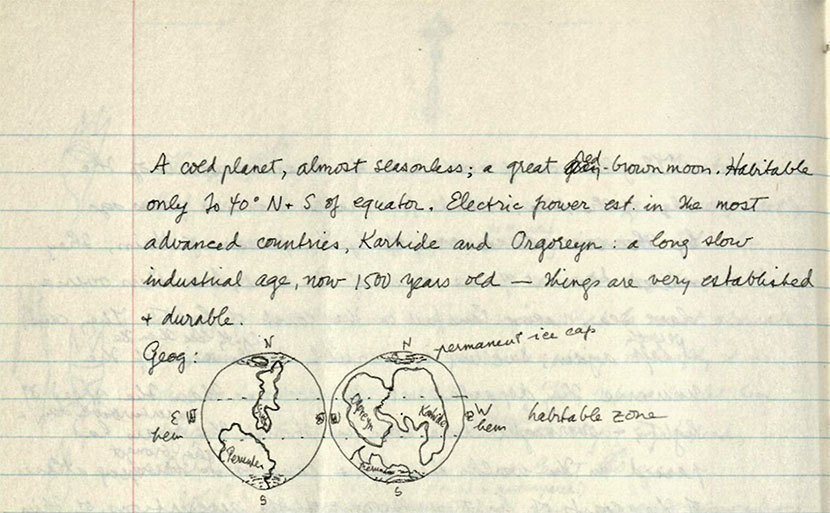 A cold planet, almost seasonless; a great red-brown moon. Habitable
only to 40° N + S of equator. Electric power est. in the most
advanced countries, Karhide and Orgoreyn: a long slow
industrial age, now 1500 years old — things are very established
+ durable.
Geog:
N
N
permanent ice cap
E
hem
W
hem
habitable zone
Orgoreyn
Karhide
Perunter
S
S